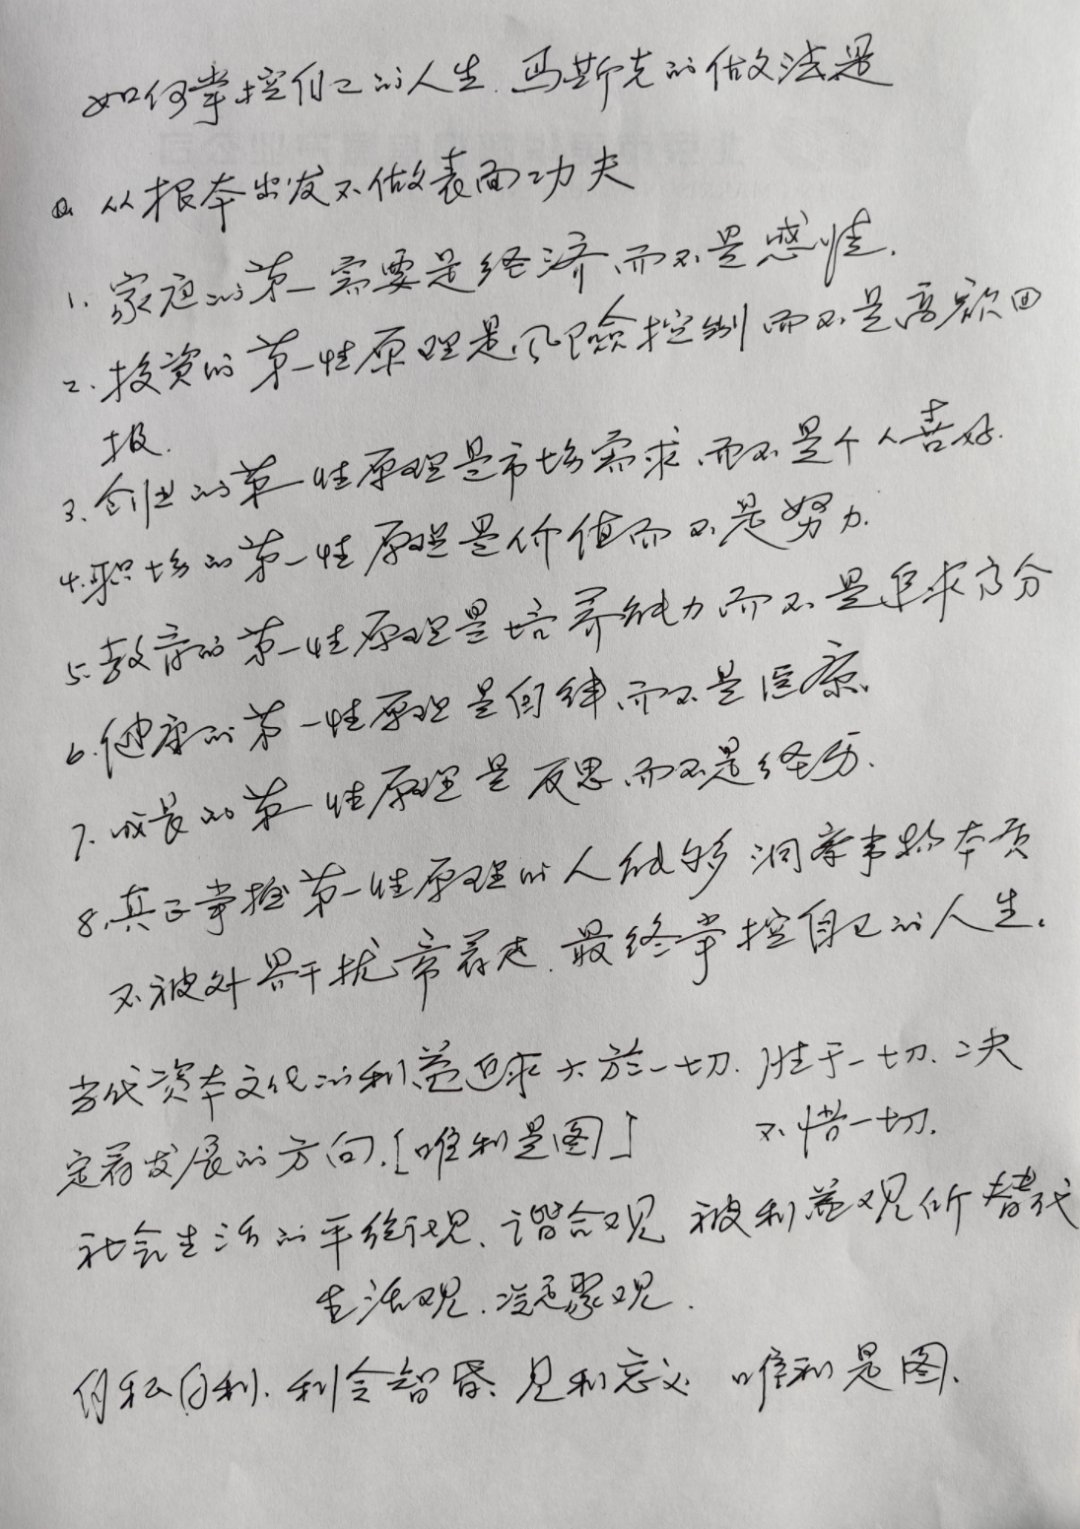 如何掌控自己的人生.马斯克的做法是
从根本出发不做表面功夫
1. 家庭的第一需要是经济,而不是感性.
2. 投资的第一性原理是风险控制而不是高额回
报.
3. 创业的第一性原理是市场需求,而不是个人喜好.
4. 职场的第一性原理是价值而不是努力.
5. 教育的第一性原理是培养能力而不是追求高分
6. 健康的第一性原理是自律,而不是医疗、
7. 成长的第一性原理是反思,而不是经历.
8. 真正掌握第一性原理的人能够洞察事物本质
不被外界干扰带着走.最终掌控自己的人生.
当代资本文化的利益追求大於一切.胜于一切.决
定着发展的方向.[唯利是图] 不惜一切.
社会生活的平统观、谐合观 被利益观所替代
生活观.凝聚观.
自私自利.利令智昏、见利忘义 唯利是图.